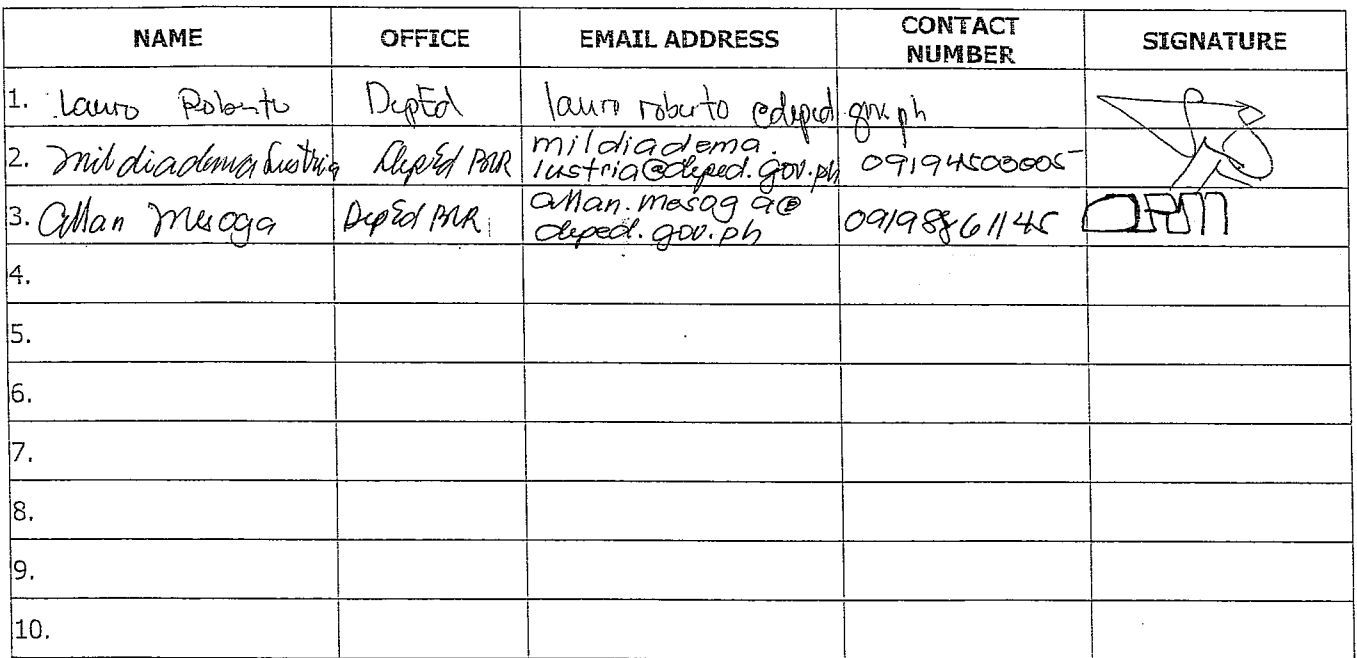 NAME OFFICE EMAIL ADDRESS CONTACT NUMBER SIGNATURE
1. Lauro Roberto DepEd lauro roberto @deped.gov.ph
2. Mildiadema Lustria DepEd BLR mildiadema.
lustria@deped.gov.ph 09194500005
3. Allan Mesoga DepEd BLR allan.mesoga@
deped.gov.ph 09198861145
4.
5.
6.
7.
8.
9.
10.